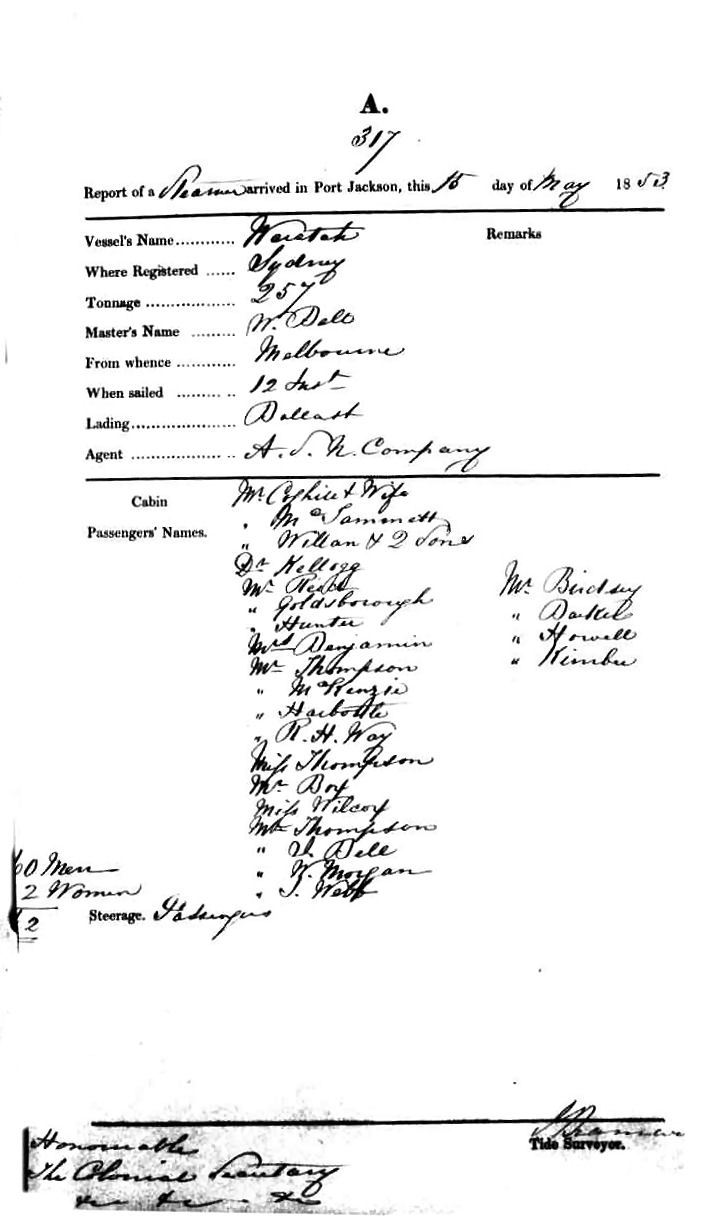 A.
317
Report of a Steamer arrived in Port Jackson, this 15 day of May 1853
Vessel's Name............ Waratah
Remarks
Where Registered ...... Sydney
Tonnage .................. 257
Master's Name ......... W. Dell
From whence ............ Melbourne
When sailed ......... .. 12 Inst
Lading..................... Ballast
Agent ................. .. A. S. N. Company
Cabin
Passengers' Names.
Mr Coghill & Wife
" McSammett
" Willan & 2 Sons
Dr Kellogg
Mr
" Goldsborough
" Hunter
Mrs Benjamin
Mr Thompson
" McKenzie
" Harbottle
" R. H. Way
Miss Thompson
Mr Box
Miss Wilcox
Thompson
" Dell
" W. Morgan
" J. Webb
Mr Birdsey
"
" Howell
" Kimber
60 Men
2 Women
62
Steerage. Passengers
Tide Surveyor.
Honourable
The Colonial Secretary
&c &c &c